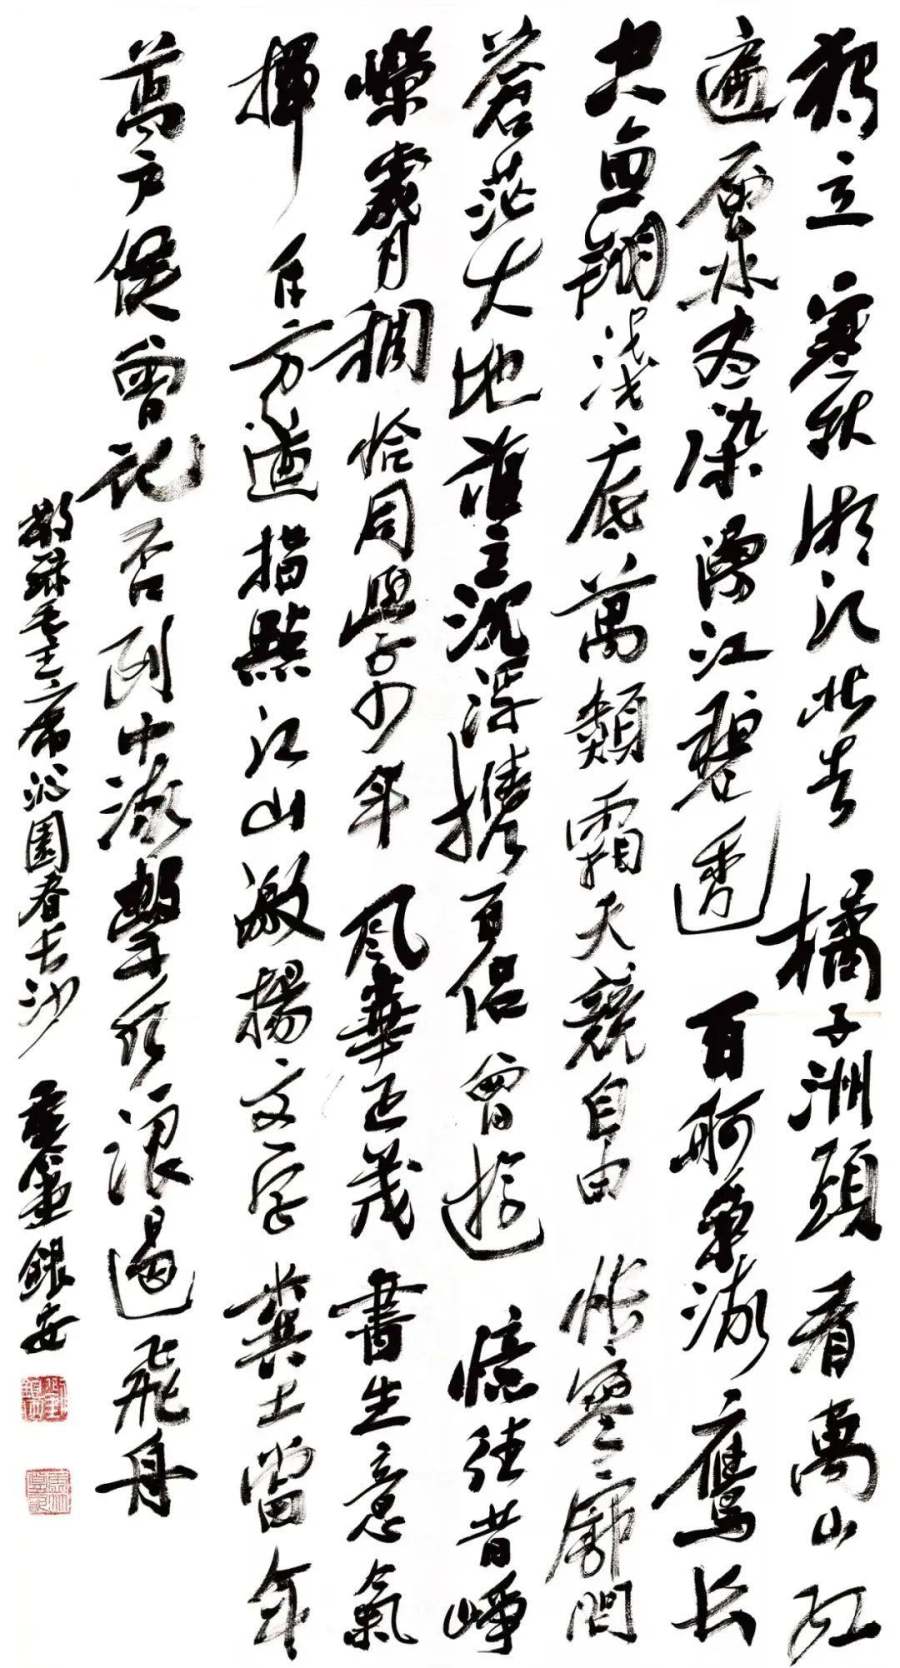 獨立寒秋湘江北去橘子洲頭看萬山紅
遍層林盡染漫江碧透百舸爭流鷹长
空魚翔淺底萬類霜天競自由悵寥廓問
蒼茫大地誰主沉浮攜百侶曾遊憶往昔崢
嶸歲月稠恰同學少年風華正茂書生意氣
揮斥方遒指點江山激揚文字糞土當年
萬戶侯曾記否到中流擊水浪遏飛舟
敬錄毛主席沁園春长沙